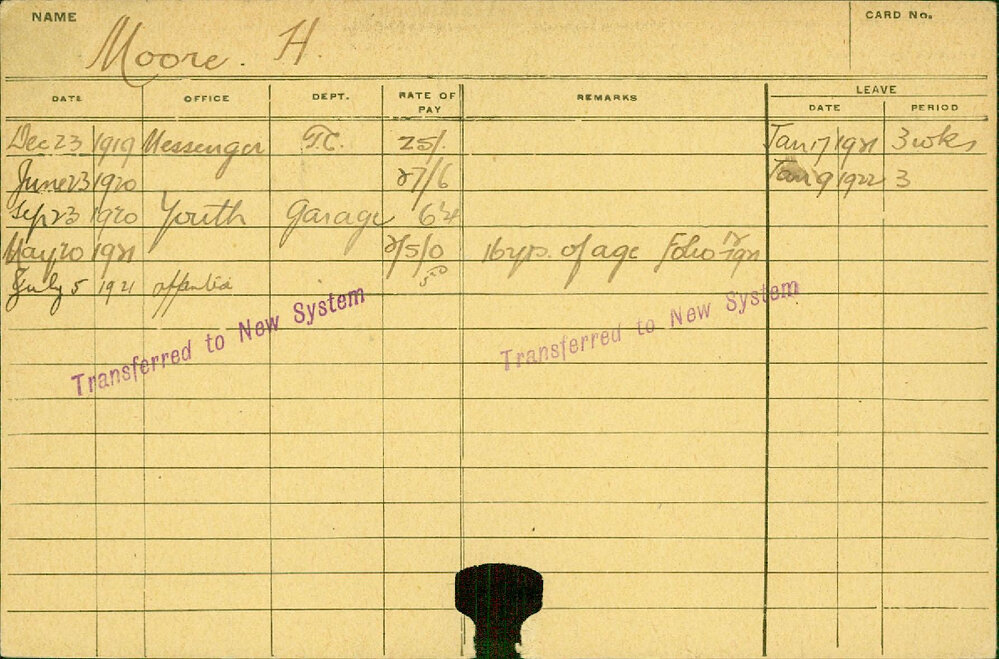 NAME CARD No.
Moore. H.
DATE OFFICE DEPT. RATE OF PAY REMARKS LEAVE
DATE PERIOD
Dec 23 1919 Messenger T.C. 25/. Jan 17 1921 3 wks
June 23 1920 27/6 Jan 9 1922 3
Sep 23 1920 Youth Garage 6¼
May 20 1921 2/5/0 16 yrs. of age Folio
July 5 1921
Transferred to New System
Transferred to New System